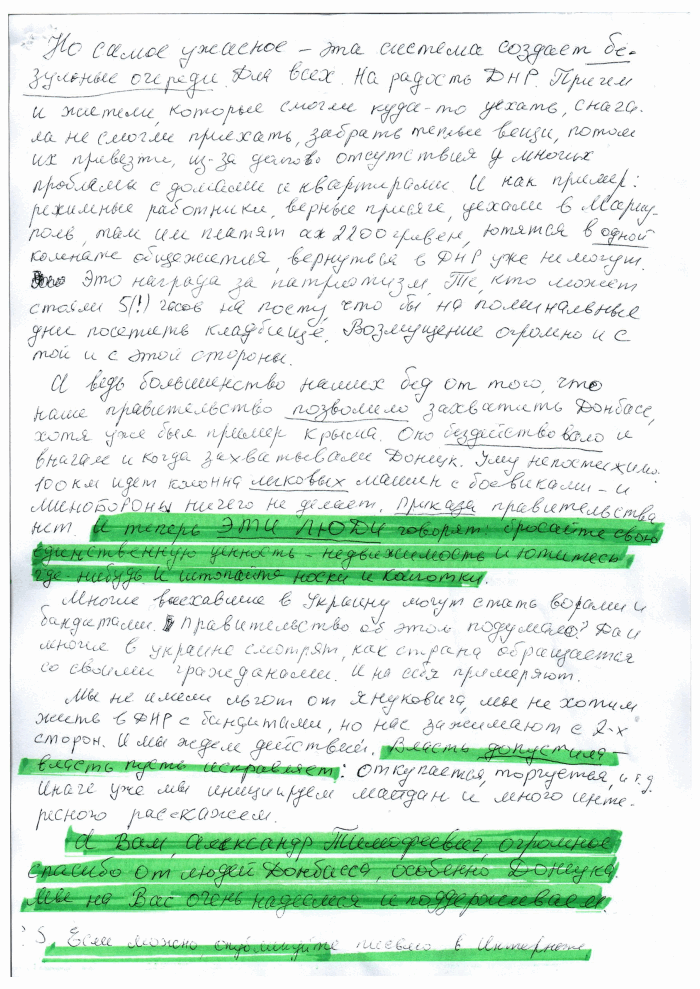 Но самое ужасное – эта система создает бе-
зумные очереди. Для всех. На радость ДНР. Причем
и жители, которые смогли куда-то уехать, снача-
ла не смогли приехать, забрать теплые вещи, потом
их привезти, из-за долгого отсутствия у многих
проблемы с домами и квартирами. И как пример:
режимные работники, верные присяге, уехали в Мариу-
поль, там им платят аж 2200 гривен, ютятся в одной
комнате общежития, вернуться в ДНР уже не могут.
Это награда за патриотизм. Те, кто может
стояли 5(!) часов на посту, что бы на поминальные
дни посетить кладбище. Возмущение огромно и с
той и с этой стороны.
А ведь большинство наших бед от того, что
наше правительство позволило захватить Донбасс,
хотя уже был пример Крыма. Оно бездействовало и
вначале и когда захватывали Донецк. Уму непостижимо:
100 км идет колонна легковых машин с боевиками – и
Минобороны ничего не делает. Приказа правительства
нет. И теперь ЭТИ ЛЮДИ говорят: бросайте свою
единственную ценность – недвижимость и ютитесь
где-нибудь и штопайте носки и колготки.
Многие выехавшие в Украину могут стать ворами и
бандитами. Правительство об этом подумало? Да и
многие в украине смотрят, как страна обращается
со своими гражданами. И на себя примеряют.
Мы не имели льгот от Януковича, мы не хотим
жить в ДНР с бандитами, но нас зажимают с 2-х
сторон. И мы ждем действий. Власть допустила –
власть пусть исправляет: откупается, торгуется, и т.д.
Иначе уже мы инициируем майдан и много инте-
ресного расскажем.
А Вам, Александр Тимофеевич, огромное
спасибо от людей Донбасса, особенно Донецка.
Мы на Вас очень надеемся и поддерживаем.
S. Если можно, опубликуйте письмо в Интернете.